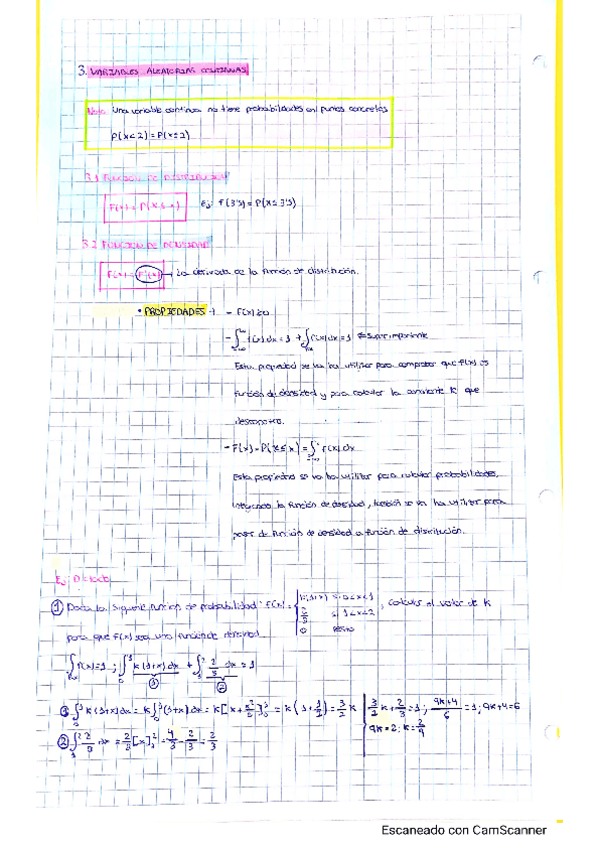 3. VARIABLES ALEATORIAS CONTINUAS
Nota: Una variable continua no tiene probabilidades en puntos concretos
P(x<2) = P(x≤2)
3.1 FUNCIÓN DE DISTRIBUCIÓN
F(x) = P(X≤x) Ej: F(3'5) = P(X≤3'5)
3.2 FUNCIÓN DE DENSIDAD
F(x) = F'(x) → La derivada de la función de distribución.
• PROPIEDADES → - F(x)≥0
f(x)dx = 1
Esta propiedad se va ha utilizar para comprobar que f(x) es
función de densidad y para calcular la constante K que
desconozco.
- F(x) = P(X≤x) = ∫ f(x)dx
Esta propiedad se va ha utilizar para calcular probabilidades,
integrando la función de densidad, también se va ha utilizar para
pasar de función de densidad a función de distribución.
① Dada la siguiente función de probabilidad f(x) = K(1+x) si 0<x<1, calcula el valor de K
2/3 si 1<x<2
0 resto
para que f(x) sea una función de densidad
∫f(x)=1 ; ∫ k(1+x)dx + ∫ 2/3 dx = 1
① ②
① ∫ k(1+x)dx = k∫(1+x)dx = k[x + x²/2] = k(1+1/2) = 3/2 k 3/2 k + 2/3 = 1; 9k+4/6 = 1; 9k+4=6
② ∫ 2/3 dx = 2/3 [x] = 4/3 - 2/3 = 2/3 9k=2; k=2/9
Escaneado con CamScanner